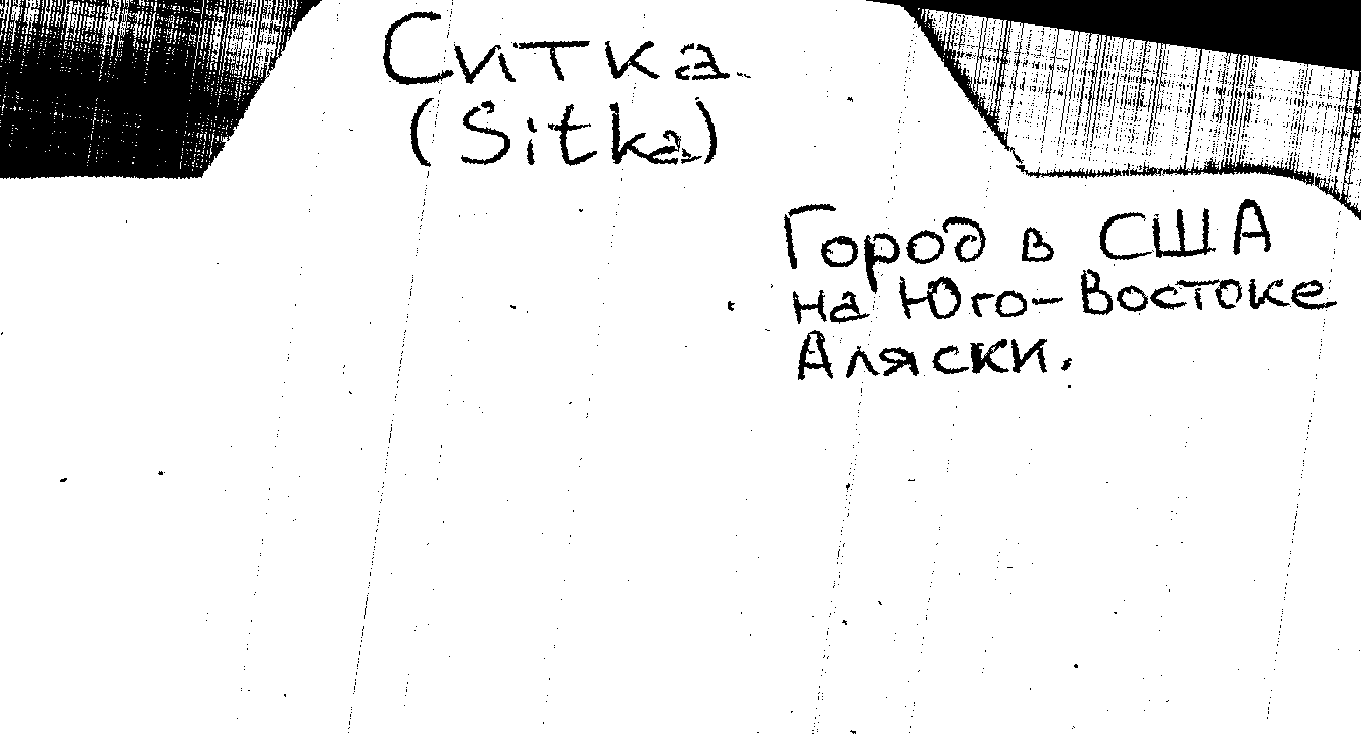 Ситка
(Sitka)
Город в США
на Юго-Востоке
Аляски.